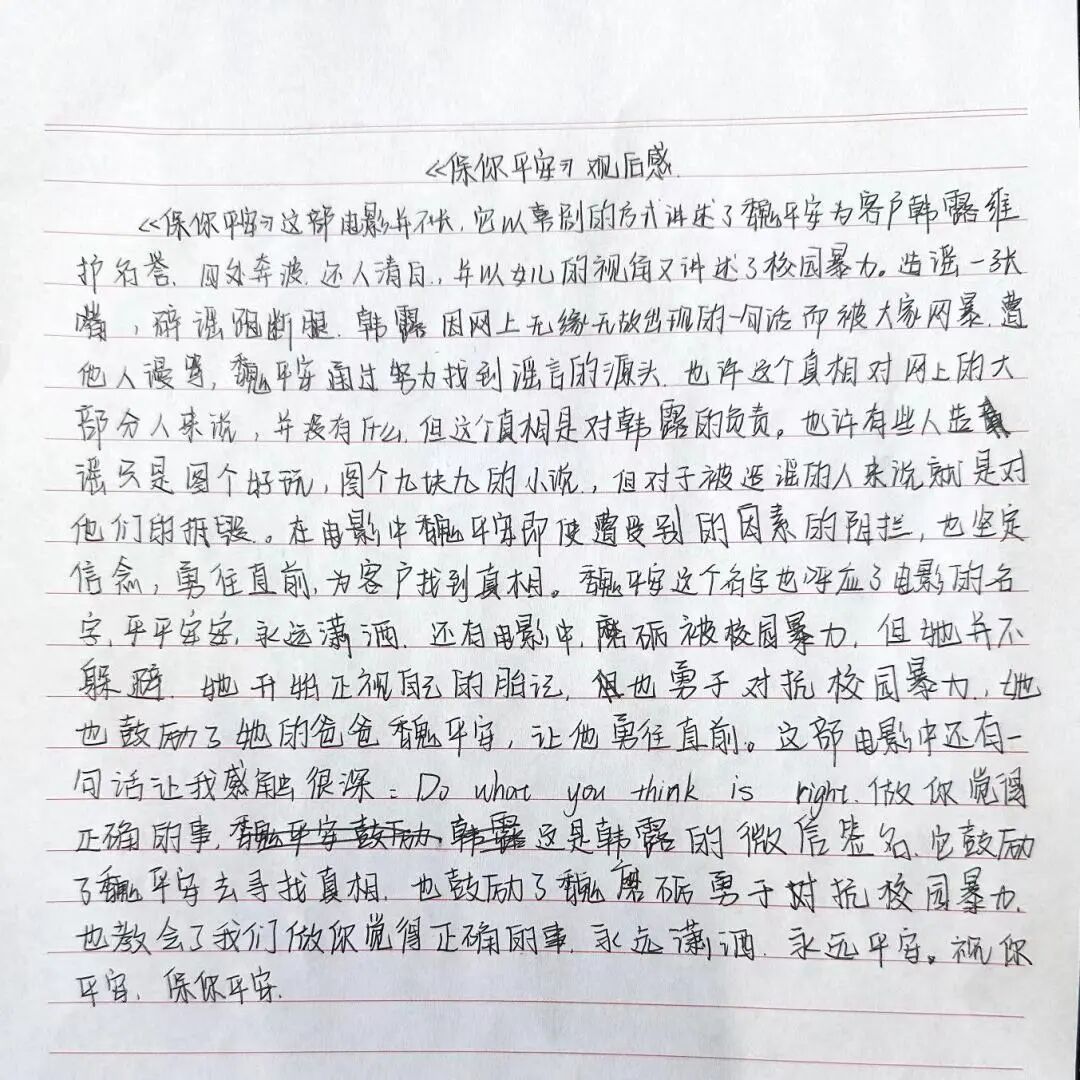 《保你平安》观后感.
《保你平安》这部电影并不长,它以喜剧的方式讲述了魏平安为客户韩露维
护名誉,四处奔波,还人清白,并以女儿的视角又讲述了校园暴力。造谣一张
嘴,辟谣跑断腿.韩露因网上无缘无故出现的一句话而被大家网暴.遭
他人谩骂,魏平安通过努力找到谣言的源头.也许这个真相对网上的大
部分人来说,并没有什么,但这个真相是对韩露的负责。也许有些人造
谣只是图个好玩,图个九块九的小说,但对于被造谣的人来说就是对
他们的摧毁。在电影中魏平安即使遭受别的因素的阻拦,也坚定
信念,勇往直前,为客户找到真相。魏平安这个名字也呼应了电影的名
字,平平安安,永远潇洒.还有电影中,磨砺被校园暴力,但她并不
躲避.她开始正视自己的胎记,也勇于对抗校园暴力,她
也鼓励了她的爸爸魏平安,让他勇往直前。这部电影中还有一
句话让我感触很深:Do what you think is right.做你觉得
正确的事,魏平安鼓励韩露这是韩露的微信签名.它鼓励
了魏平安去寻找真相.也鼓励了魏磨砺勇于对抗校园暴力.
也教会了我们做你觉得正确的事.永远潇洒.永远平安。祝你
平安.保你平安.